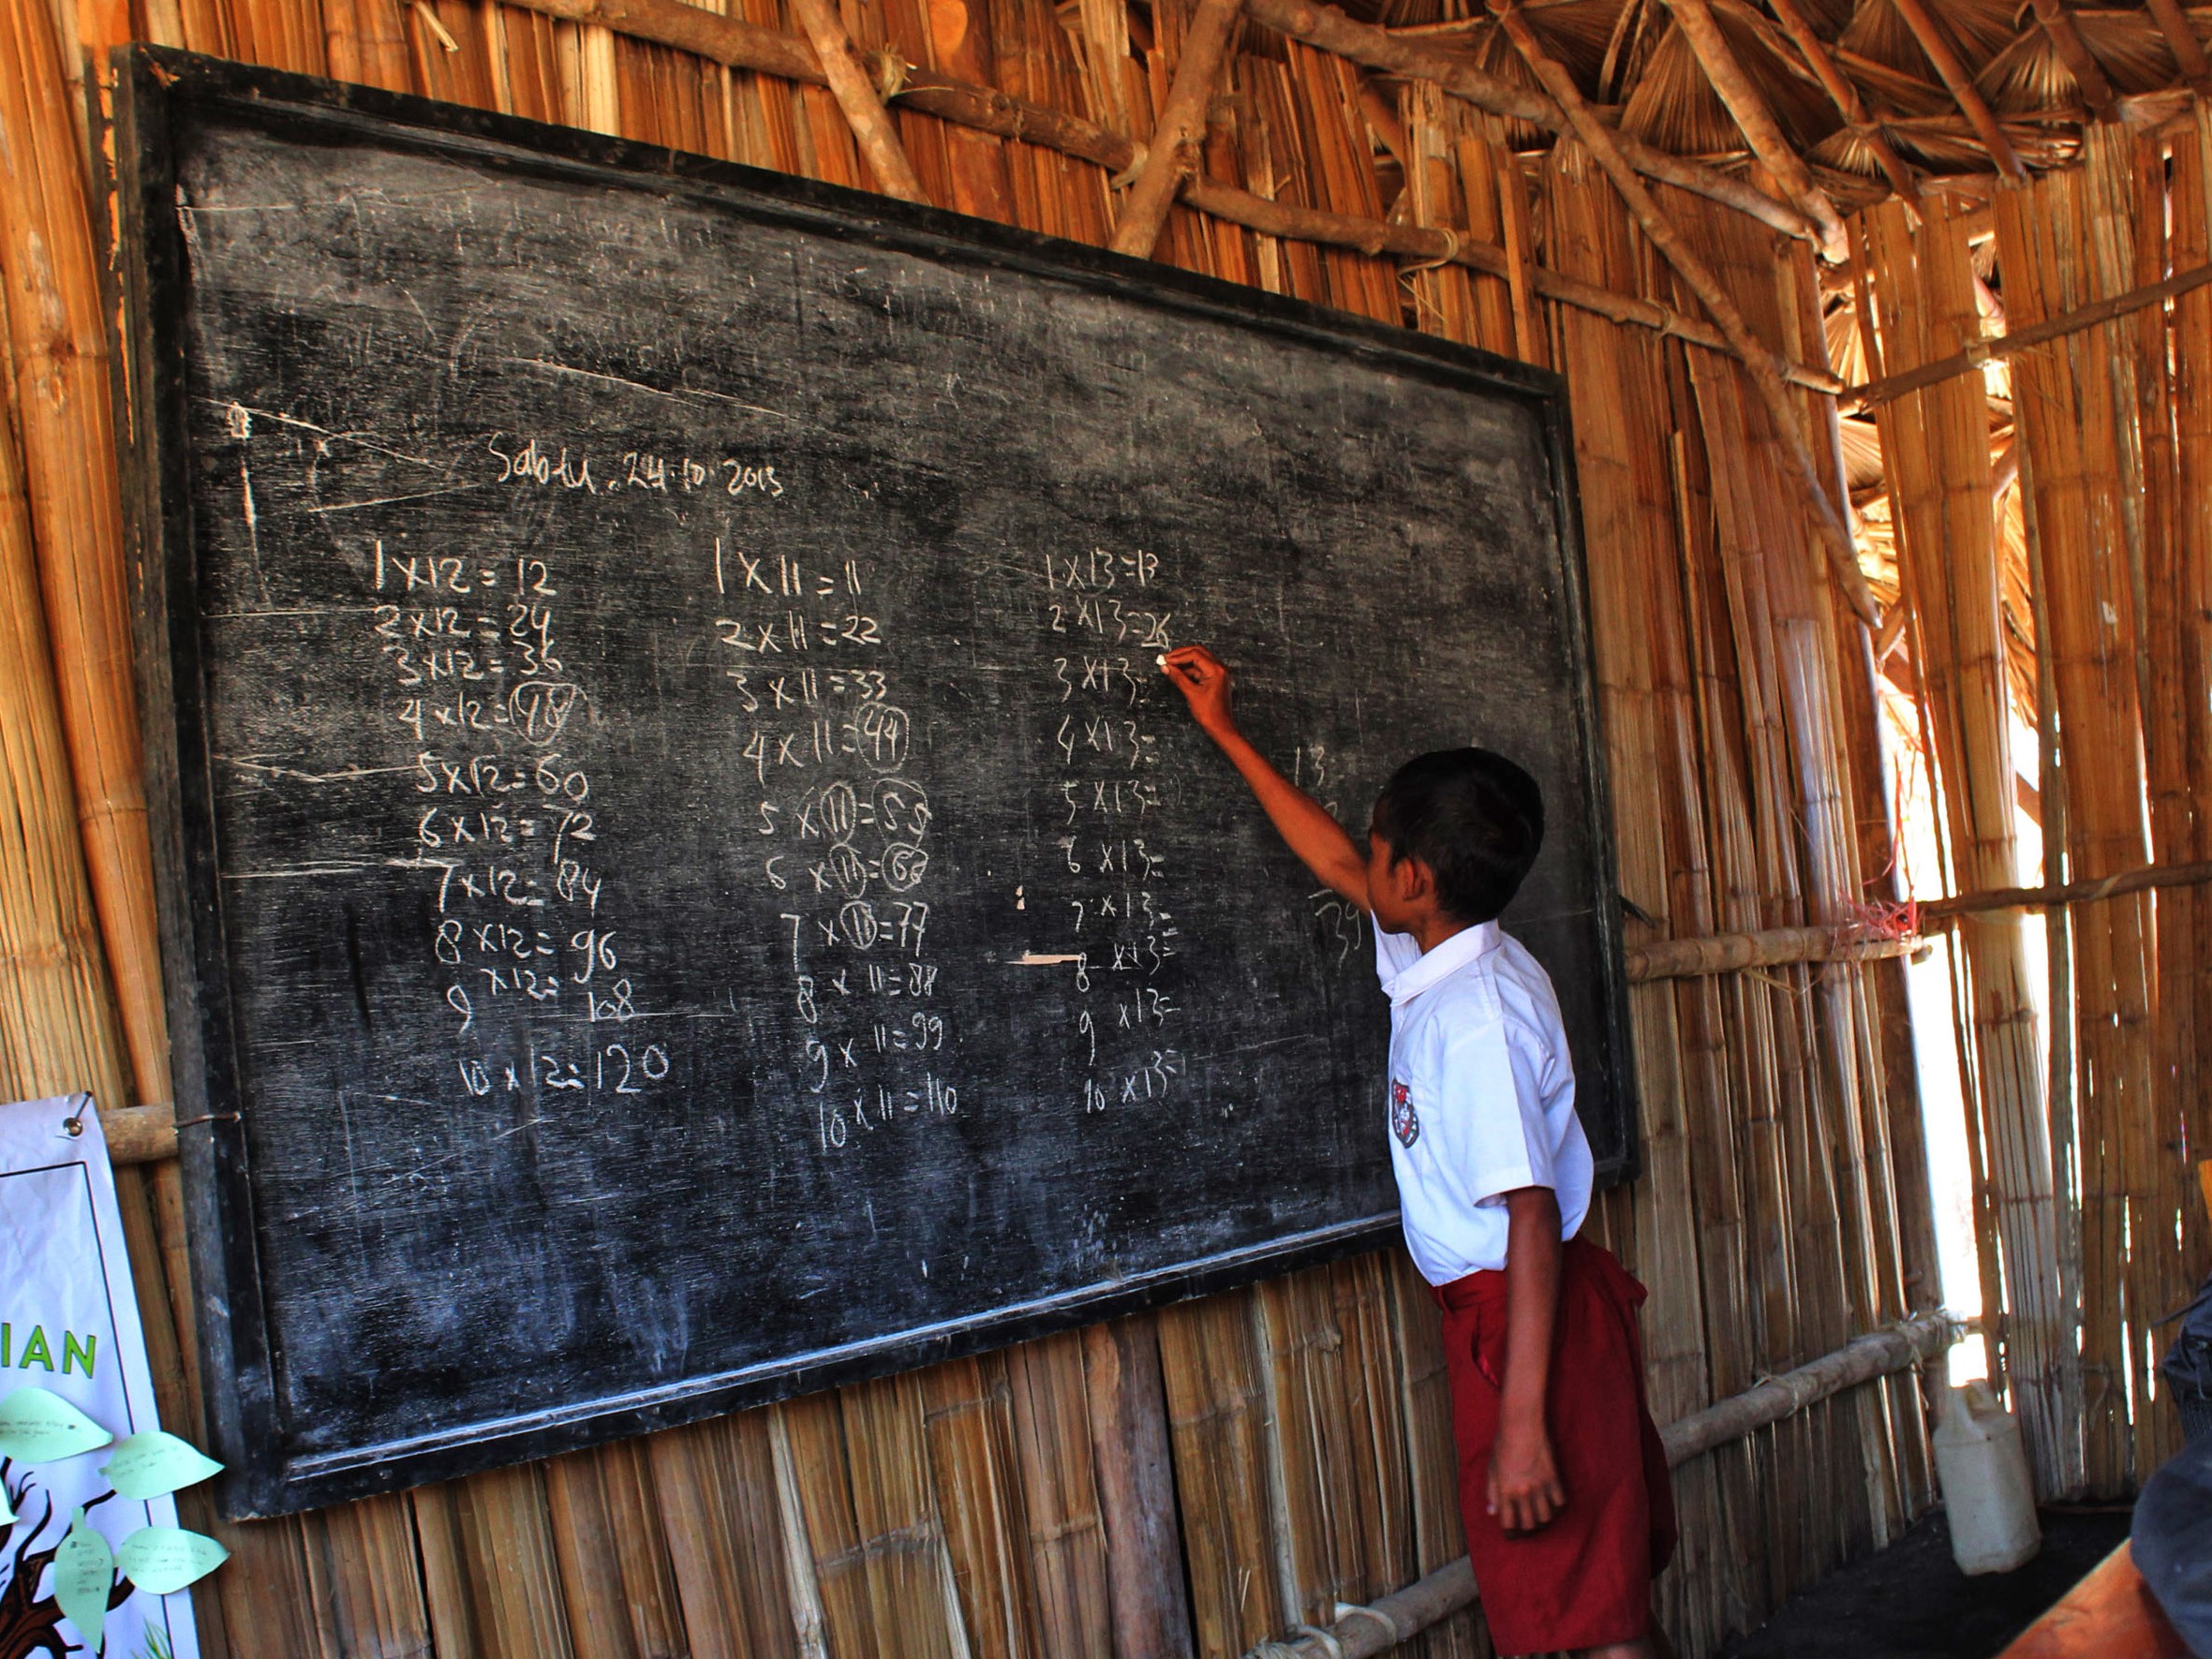 Sabtu, 24.10.2015
1 x 12 = 12
2 x 12 = 24
3 x 12 = 36
4 x 12 = 48
5 x 12 = 60
6 x 12 = 72
7 x 12 = 84
8 x 12 = 96
9 x 12 = 108
10 x 12 = 120
1 x 11 = 11
2 x 11 = 22
3 x 11 = 33
4 x 11 = 44
5 x 11 = 55
6 x 11 = 66
7 x 11 = 77
8 x 11 = 88
9 x 11 = 99
10 x 11 = 110
1 x 13 = 13
2 x 13 = 26
3 x 13 =
4 x 13 =
5 x 13 =
6 x 13 =
7 x 13 =
8 x 13 =
9 x 13 =
10 x 13 =
13
39
IAN